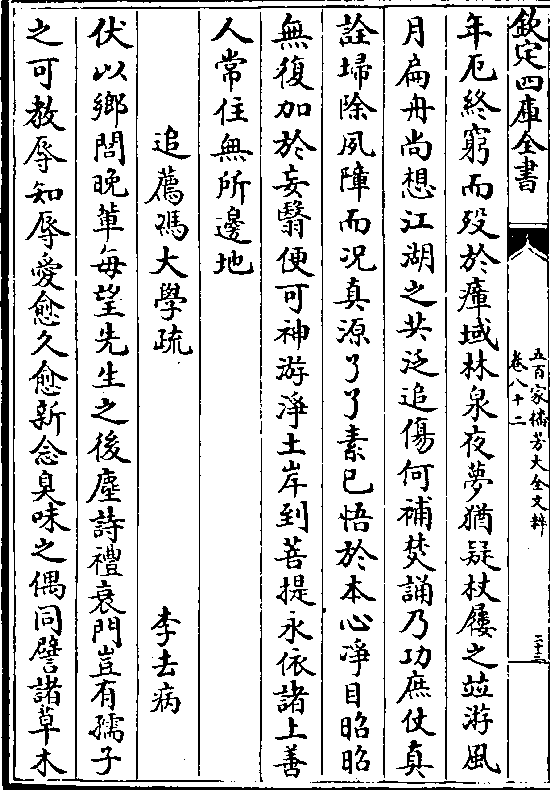 欽定四庫全書
五百家播芳大全文粹
卷八十二
二十三
年厄終窮而殁於瘴域林泉夜夢猶疑杖屨之竝游風
月扁舟尚想江湖之共泛追傷何補焚誦乃功庶仗真
詮埽除夙障而况真源了了素已悟於本心凈目昭昭
無復加於妄翳便可神游淨土岸到菩提永依諸上善
人常住無所邊地
追薦馮大學疏
李去病
伏以鄉閭晚輩每望先生之後塵詩禮衰門豈有孺子
之可教辱知辱愛愈久愈新念臭味之偶同譬諸草木